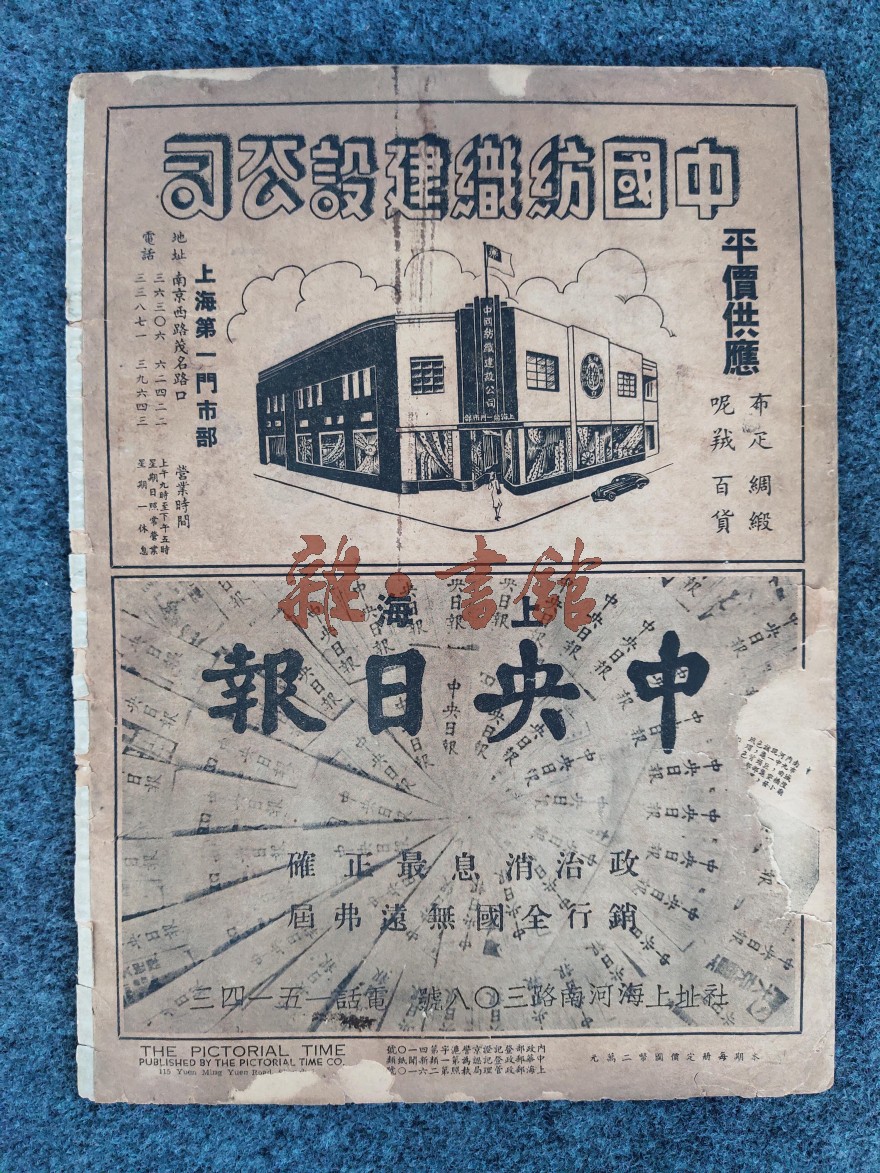 中國紡織建設公司
平價供應
布疋綢緞
呢羢百貨
中國紡織建設公司
上海第一門市部
上海第一門市部
地址 南京西路茂名路口
電話 三六三〇六 六二四二二
三三八七一 三九六四三
營業時間
上午九時至下午五時
星期日照常營業
星期一休息
雜·書館
上海
中央日報
政治消息最正確
銷行全國無遠弗屆
社址上海河南路三〇八號 電話一五一四三
THE PICTORIAL TIME
PUBLISHED BY THE PICTORIAL TIME CO.
115 Yuen Ming Yuen Road
內政部登記證京警滬字第四一〇號
中華郵政登記認為第一類新聞紙類
上海郵政管理局執照第二六一〇號
本期每冊定價國幣二萬元